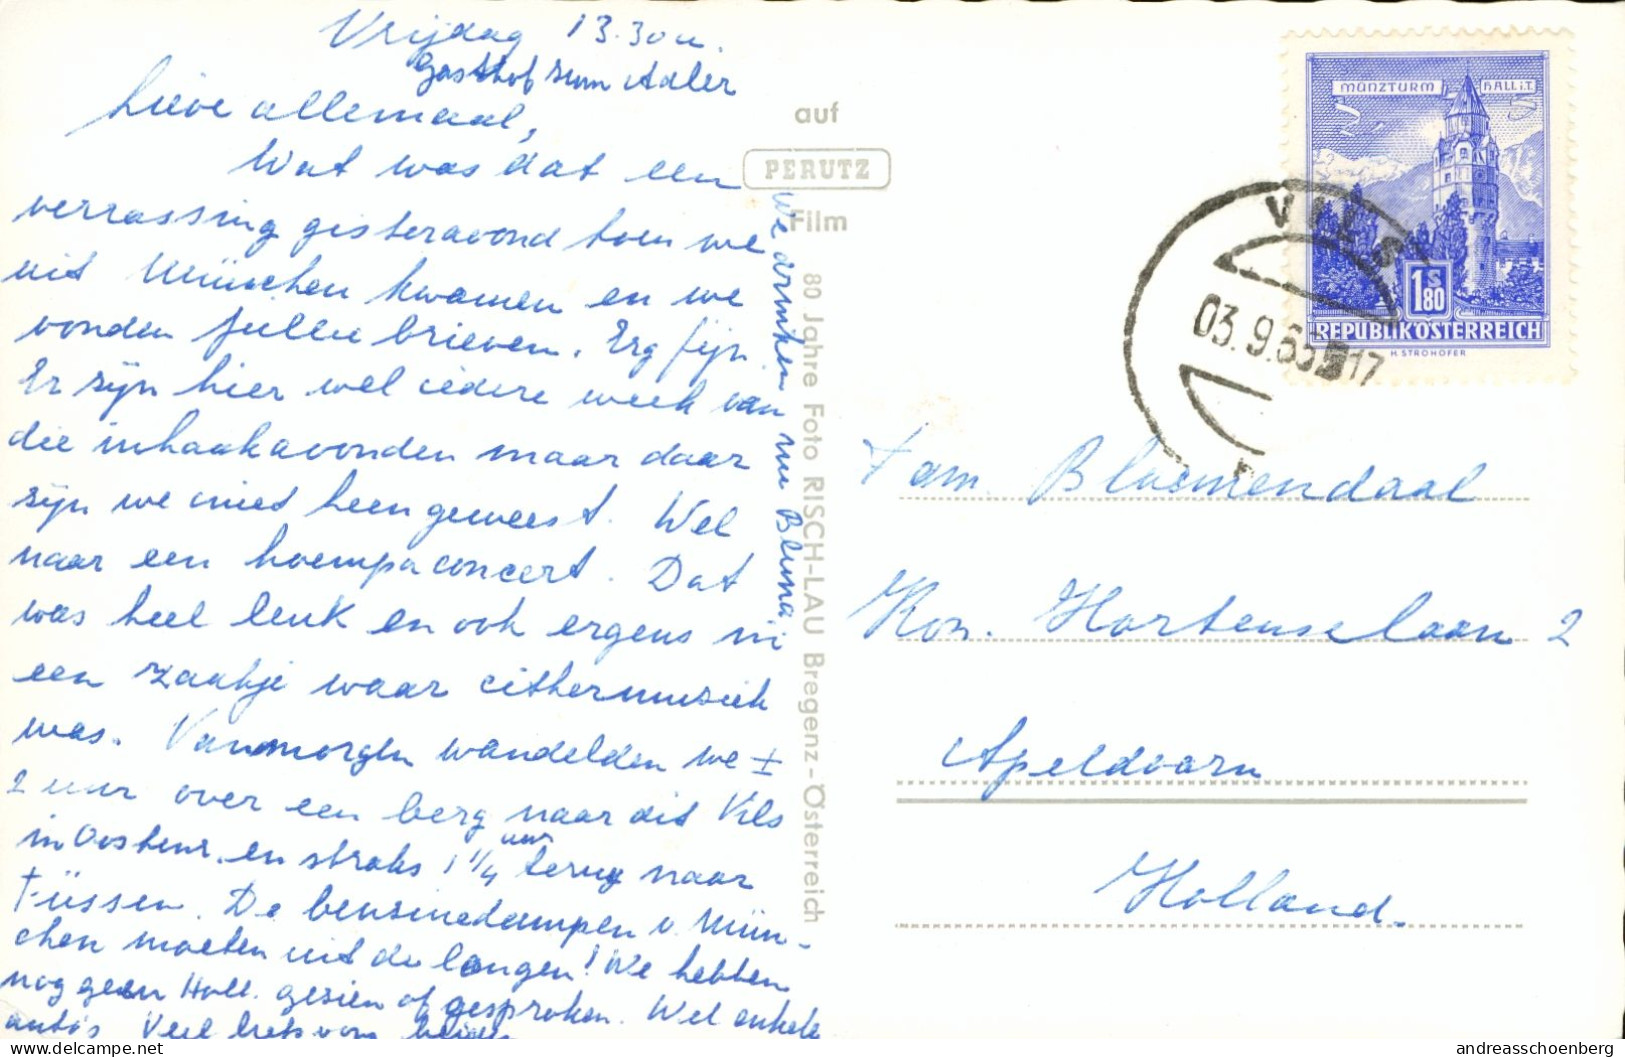 Vrijdag 13.30 u.
Gasthof zum Adler
Lieve allemaal,
Wat was dat een
verrassing gisteravond toen we
uit München kwamen en we
vonden jullie brieven. Erg fijn.
Er zijn hier wel iedere week van
die inhaakavonden maar daar
zijn we niet heen geweest. Wel
naar een hoempaconcert. Dat
was heel leuk en ook ergens in
een zaakje waar cithermuziek
was. Vanmorgen wandelden we ±
2 uur over een berg naar dit Vils
in Oostenr. en straks 1 1/4 uur terug naar
Füssen. De benzinedampen v. Mün-
chen moeten uit de longen! We hebben
nog geen Holl. gezien of gesproken. Wel enkele
auto's Veel liefs van beide
We drinken nu Bluna
auf
PERUTZ
Film
80 Jahre Foto RISCH-LAU Bregenz-Österreich
MÜNZTURM HALL i.T.
1S80
REPUBLIK ÖSTERREICH
H. STROHOFER
VILS
03.9.65 17
Fam. Bloemendaal
Kon. Hortenselaan 2
Apeldoorn
Holland.
www.delcampe.net
andreasschoenberg